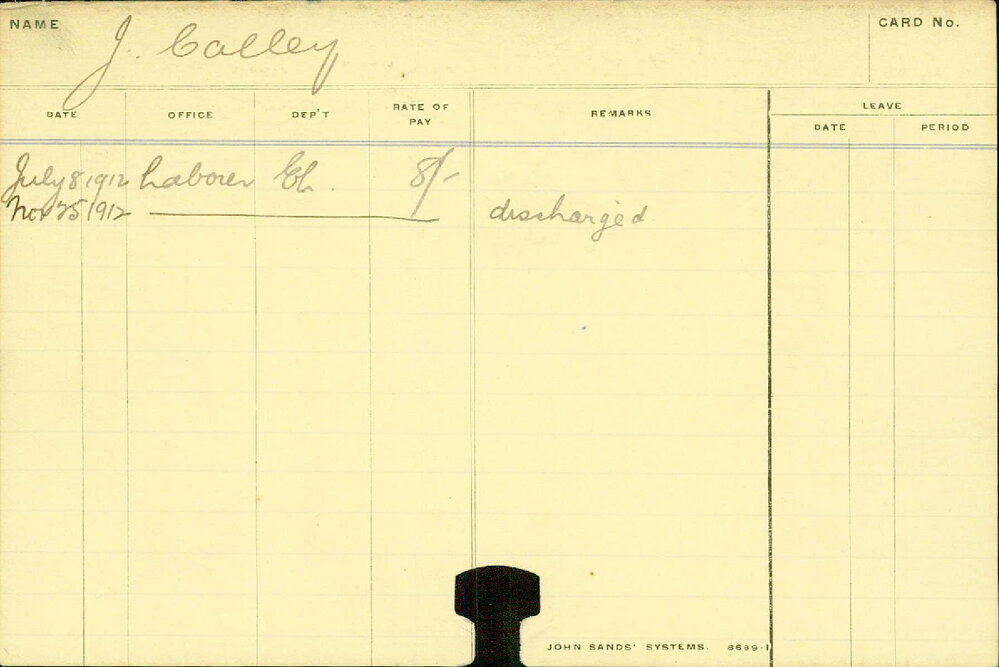 NAME J. Calley CARD No.
DATE OFFICE DEP'T RATE OF PAY REMARKS LEAVE
DATE PERIOD
July 8 1912 Laborer 8/-
Nov 25 1912 discharged
JOHN SANDS' SYSTEMS. 8699-1